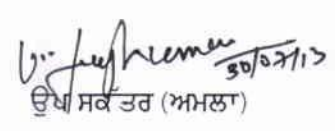 30/07/13
ਉਪ ਸਕੱਤਰ (ਅਮਲਾ)